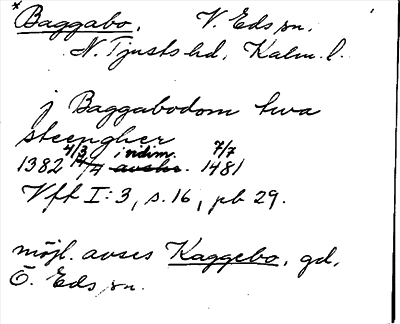 *Baggabo, V. Eds sn.
N. Tjusts hd, Kalm. l.
j Baggabodom twa
steengher
1382 4/3 14/7 i vidim. avskr. 7/7 1481
Vfk I:3, s. 16, pb 29.
möjl. avses Kaggebo, gd,
Ö. Eds sn.